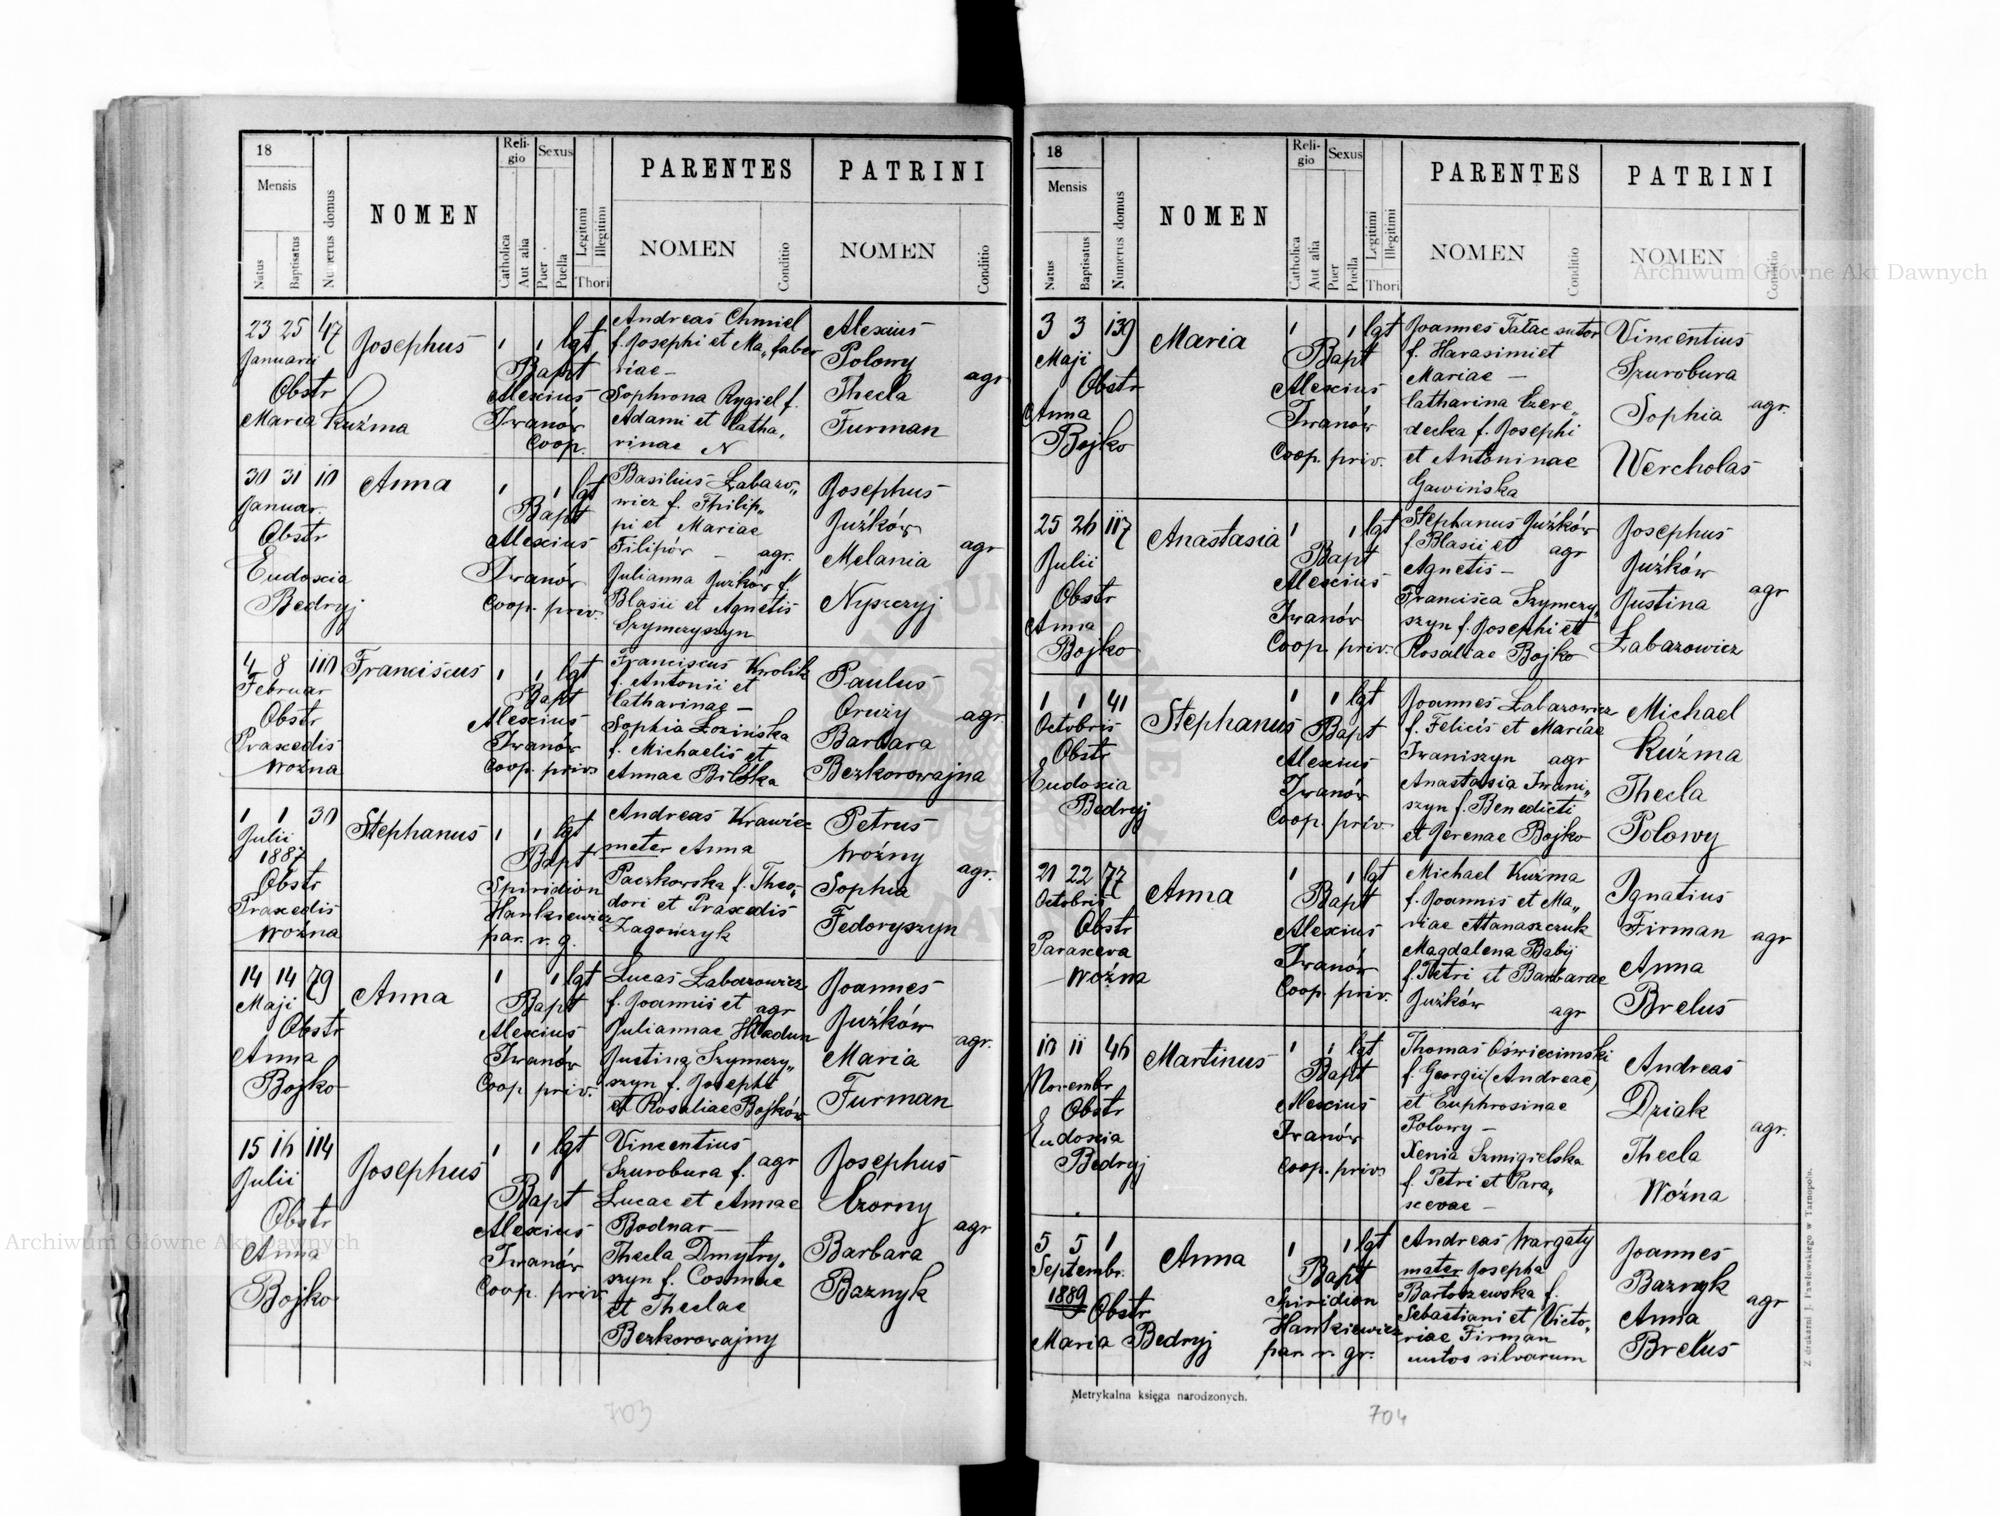 18
Mensis
Natus
Baptisatus
Numerus domus
NOMEN
Religio
Catholica
Aut alia
Sexus
Puer
Puella
Legitimi
Illegitimi
Thori
PARENTES
NOMEN
Conditio
PATRINI
NOMEN
Conditio
23 25 47
Januarii
Obstr
Maria Kuźma
Josephus
1 1 lgt
Bapt
Alexius
Iwanów
Coop.
Andreas Chmiel
f. Josephi et Ma„ faber
riae —
Sophrona Rygiel f.
Adami et Catha„
rinae N
Alexius
Polowy
Thecla
Furman
agr
30 31 10
Januar.
Obstr
Eudoxia
Bedryj
Anna
1 1 lgt
Bapt
Alexius
Iwanów
Coop. priv.
Basilius Łabaro„
wicz f. Philip„
pi et Mariae
Filipór — agr.
Julianna Juźków f.
Blasii et Agnetis
Szymczyszyn
Josephus
Juźków
Melania
Nyszczyj
agr
4 8 110
Februar
Obstr
Praxedis
Woźna
Franciscus
1 1 lgt
Bapt
Alexius
Iwanów
Coop. priv
Franciscus Krolik
f. Antonii et
Catharinae —
Sophia Łozińska
f. Michaelis et
Annae Bilska
Paulus
Oruży
Barbara
Bezkorowajna
agr
1 1 30
Julii
1887
Obstr
Praxedis
Woźna
Stephanus
1 1 lgt
Bapt
Spiridion
Hankiewicz
par. r. g.
Andreas Krawiec
meter Anna
Paczkowska f. Theo„
dori et Praxedis
Zagończyk
Petrus
Woźny
Sophia
Fedoryszyn
agr.
14 14 79
Maji
Obstr
Anna
Bojko
Anna
1 1 lgt
Bapt
Alexius
Iwanów
Coop. priv.
Lucas Łabarowicz
f. Joannis et agr
Juliannae Hładun
Justina Szymczy„
szyn f. Josephi
et Rosaliae Bojków
Joannes
Juźków
Maria
Furman
agr.
15 16 114
Julii
Obstr
Anna
Bojko
Josephus
1 1 lgt
Bapt
Alexius
Iwanów
Coop. priv
Vincentius
Szurobura f. agr
Lucae et Annae
Bodnar —
Thecla Dmytry„
szyn f. Cosmae
et Theclae
Bezkorowajny
Josephus
Czorny
Barbara
Baznyk
agr
703
18
Mensis
Natus
Baptisatus
Numerus domus
NOMEN
Religio
Catholica
Aut alia
Sexus
Puer
Puella
Legitimi
Illegitimi
Thori
PARENTES
NOMEN
Conditio
PATRINI
NOMEN
Conditio
3 3 139
Maji
Obstr
Anna
Bojko
Maria
1 1 lgt
Bapt
Alexius
Iwanów
Coop. priv.
Joannes Tałac sutor
f. Harasimi et
Mariae —
Catharina Czere„
decka f. Josephi
et Antoninae
Gawińska
Vincentius
Szurobura
Sophia
Wercholas
agr.
25 26 117
Julii
Obstr
Anna
Bojko
Anastasia
1 1 lgt
Bapt
Alexius
Iwanów
Coop. priv.
Stephanus Juźków
f. Blasii et agr
Agnetis —
Francisca Szymczy„
szyn f. Josephi et
Rosaliae Bojko
Josephus
Juźków
Justina
Łabarowicz
agr
1 1 41
Octobris
Obstr
Eudoxia
Bedryj
Stephanus
1 1 lgt
Bapt
Alexius
Iwanów
Coop. priv.
Joannes Łabarowicz
f. Felicis et Mariae
Iwaniszyn agr
Anastasia Iwani„
szyn f. Benedicti
et Jerenae Bojko
Michael
Kuźma
Thecla
Polowy
21 22 77
Octobris
Obstr
Parasceva
Woźna
Anna
1 1 lgt
Bapt
Alexius
Iwanów
Coop. priv.
Michael Kuźma
f. Joannis et Ma„
riae Atanaszczuk
Magdalena Babij
f. Petri et Barbarae
Juźków agr
Ignatius
Firman
Anna
Brelus
agr
10 11 46
Novembr
Obstr
Eudoxia
Bedryj
Martinus
1 1 lgt
Bapt
Alexius
Iwanów
Coop. priv
Thomas Oświecimski
f. Georgii (Andreae)
et Euphrosinae
Polowy —
Xenia Szmigielska
f. Petri et Para„
scevae —
Andreas
Dziak
Thecla
Woźna
agr.
5 5 1
Septembr.
1889 Obstr
Maria Bedryj
Anna
1 1 lgt
Bapt
Spiridion
Hankiewicz
par. r. gr.
Andreas Wargaty
mater Josepha
Bartoszewska f.
Sebastiani et Victo„
riae Firman
custos silvarum
Joannes
Baznyk
Anna
Brelus
agr
Metrykalna księga narodzonych.
704
Z drukarni J. Pawłowskiego w Tarnopolu.
Archiwum Główne Akt Dawnych
Archiwum Główne Akt Dawnych